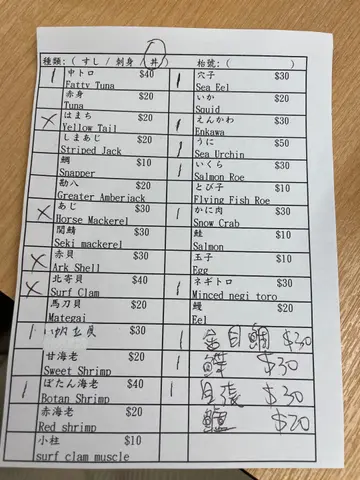 種類:( すし / 刺身 / 丼 ) 枱號:( )
1 中トロ $40 1 穴子 $30
Fatty Tuna Sea Eel
赤身 $20 いか $20
Tuna Squid
X はまち $20 1 えんかわ $30
Yellow Tail Enkawa
しまあじ $20 1 うに $50
Striped Jack Sea Urchin
鯛 $10 1 いくら $30
Snapper Salmon Roe
勘八 $20 とび子 $10
Greater Amberjack Flying Fish Roe
X あじ $30 1 かに肉 $30
Horse Mackerel Snow Crab
関鯖 $30 鮭 $10
Seki mackerel Salmon
X 赤貝 $30 玉子 $10
Ark Shell Egg
X 北寄貝 $40 1 ネギトロ $30
Surf Clam Minced negi toro
馬刀貝 $20 鰻 $20
Mategai Eel
1 $30 1 金目鯛 $30
甘海老 $20 1 $30
Sweet Shrimp
1 ぼたん海老 $40 1 目張 $30
Botan Shrimp
赤海老 $20 鱸 $20
Red shrimp
小柱 $10
surf clam muscle